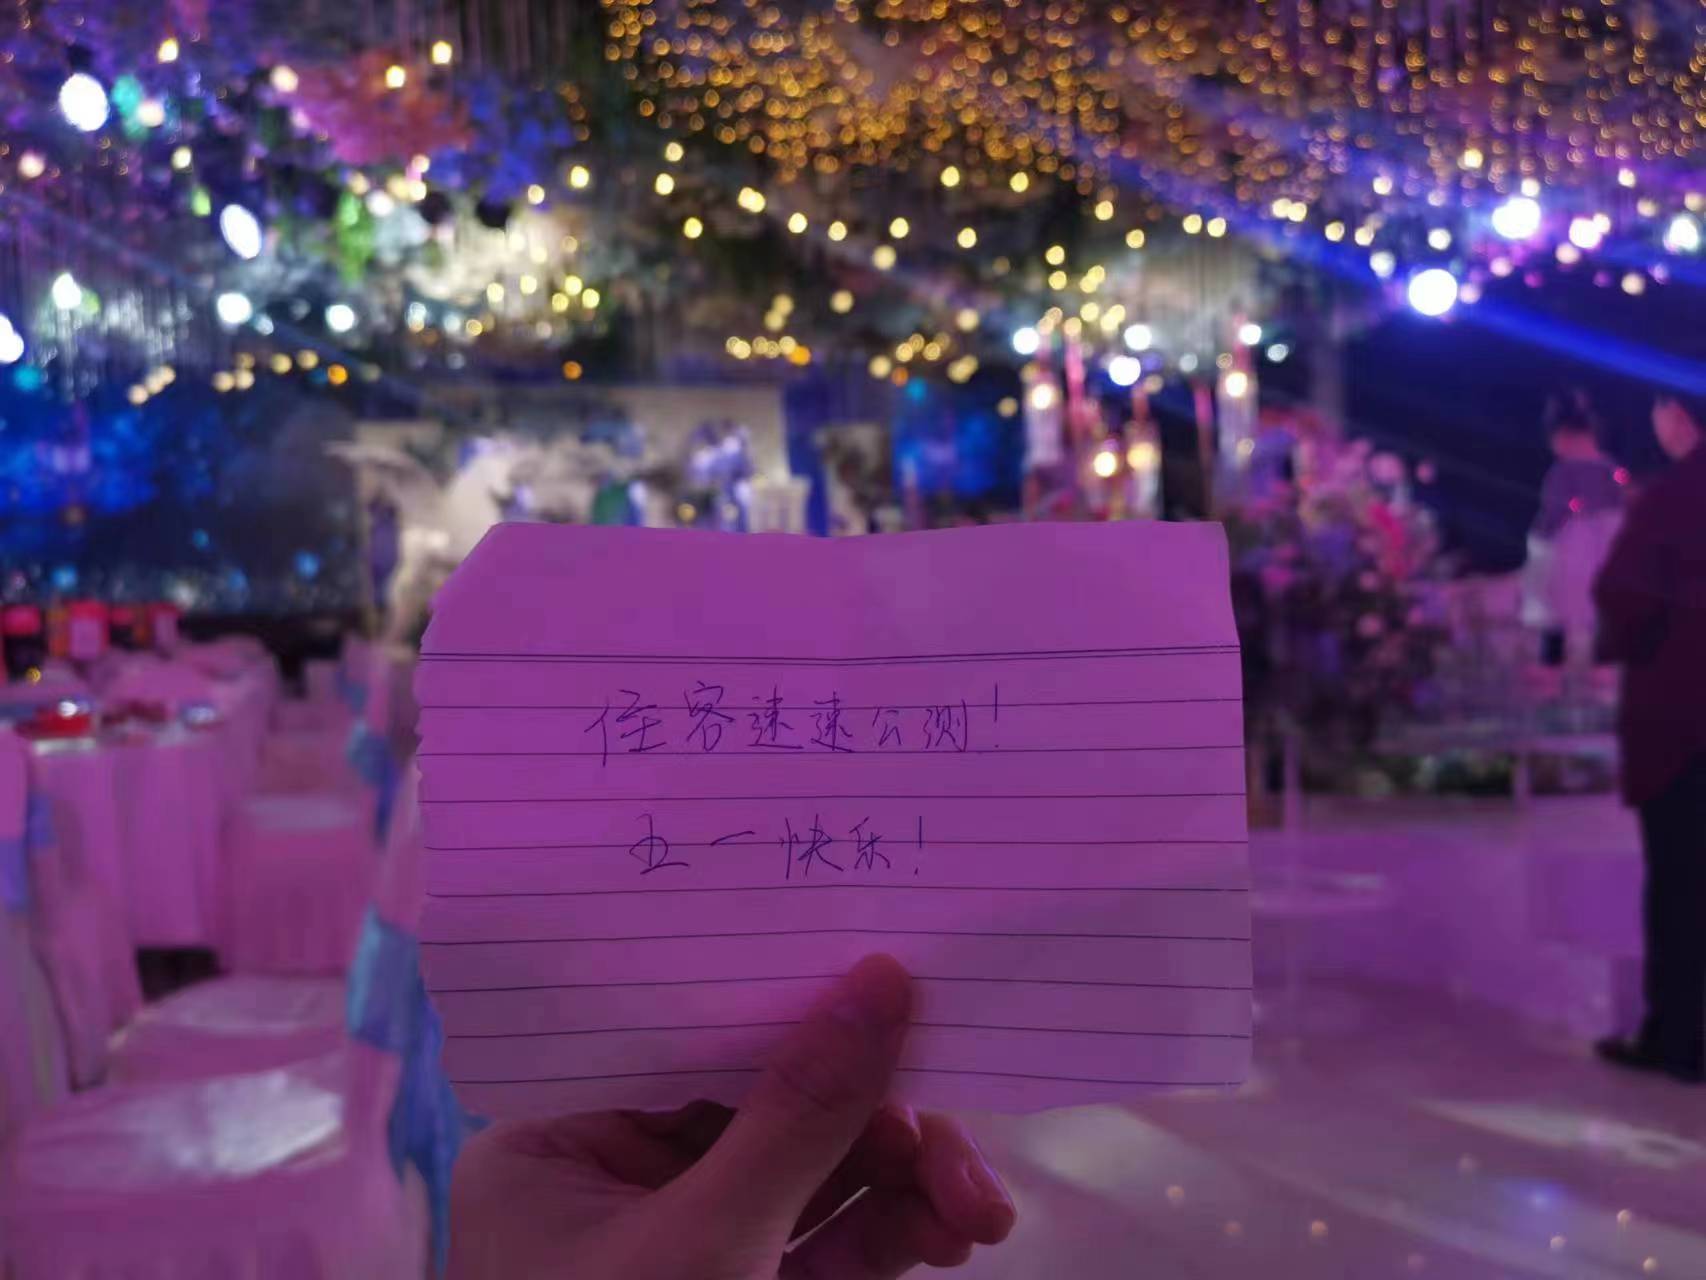 侄客速速公测!
五一快乐!